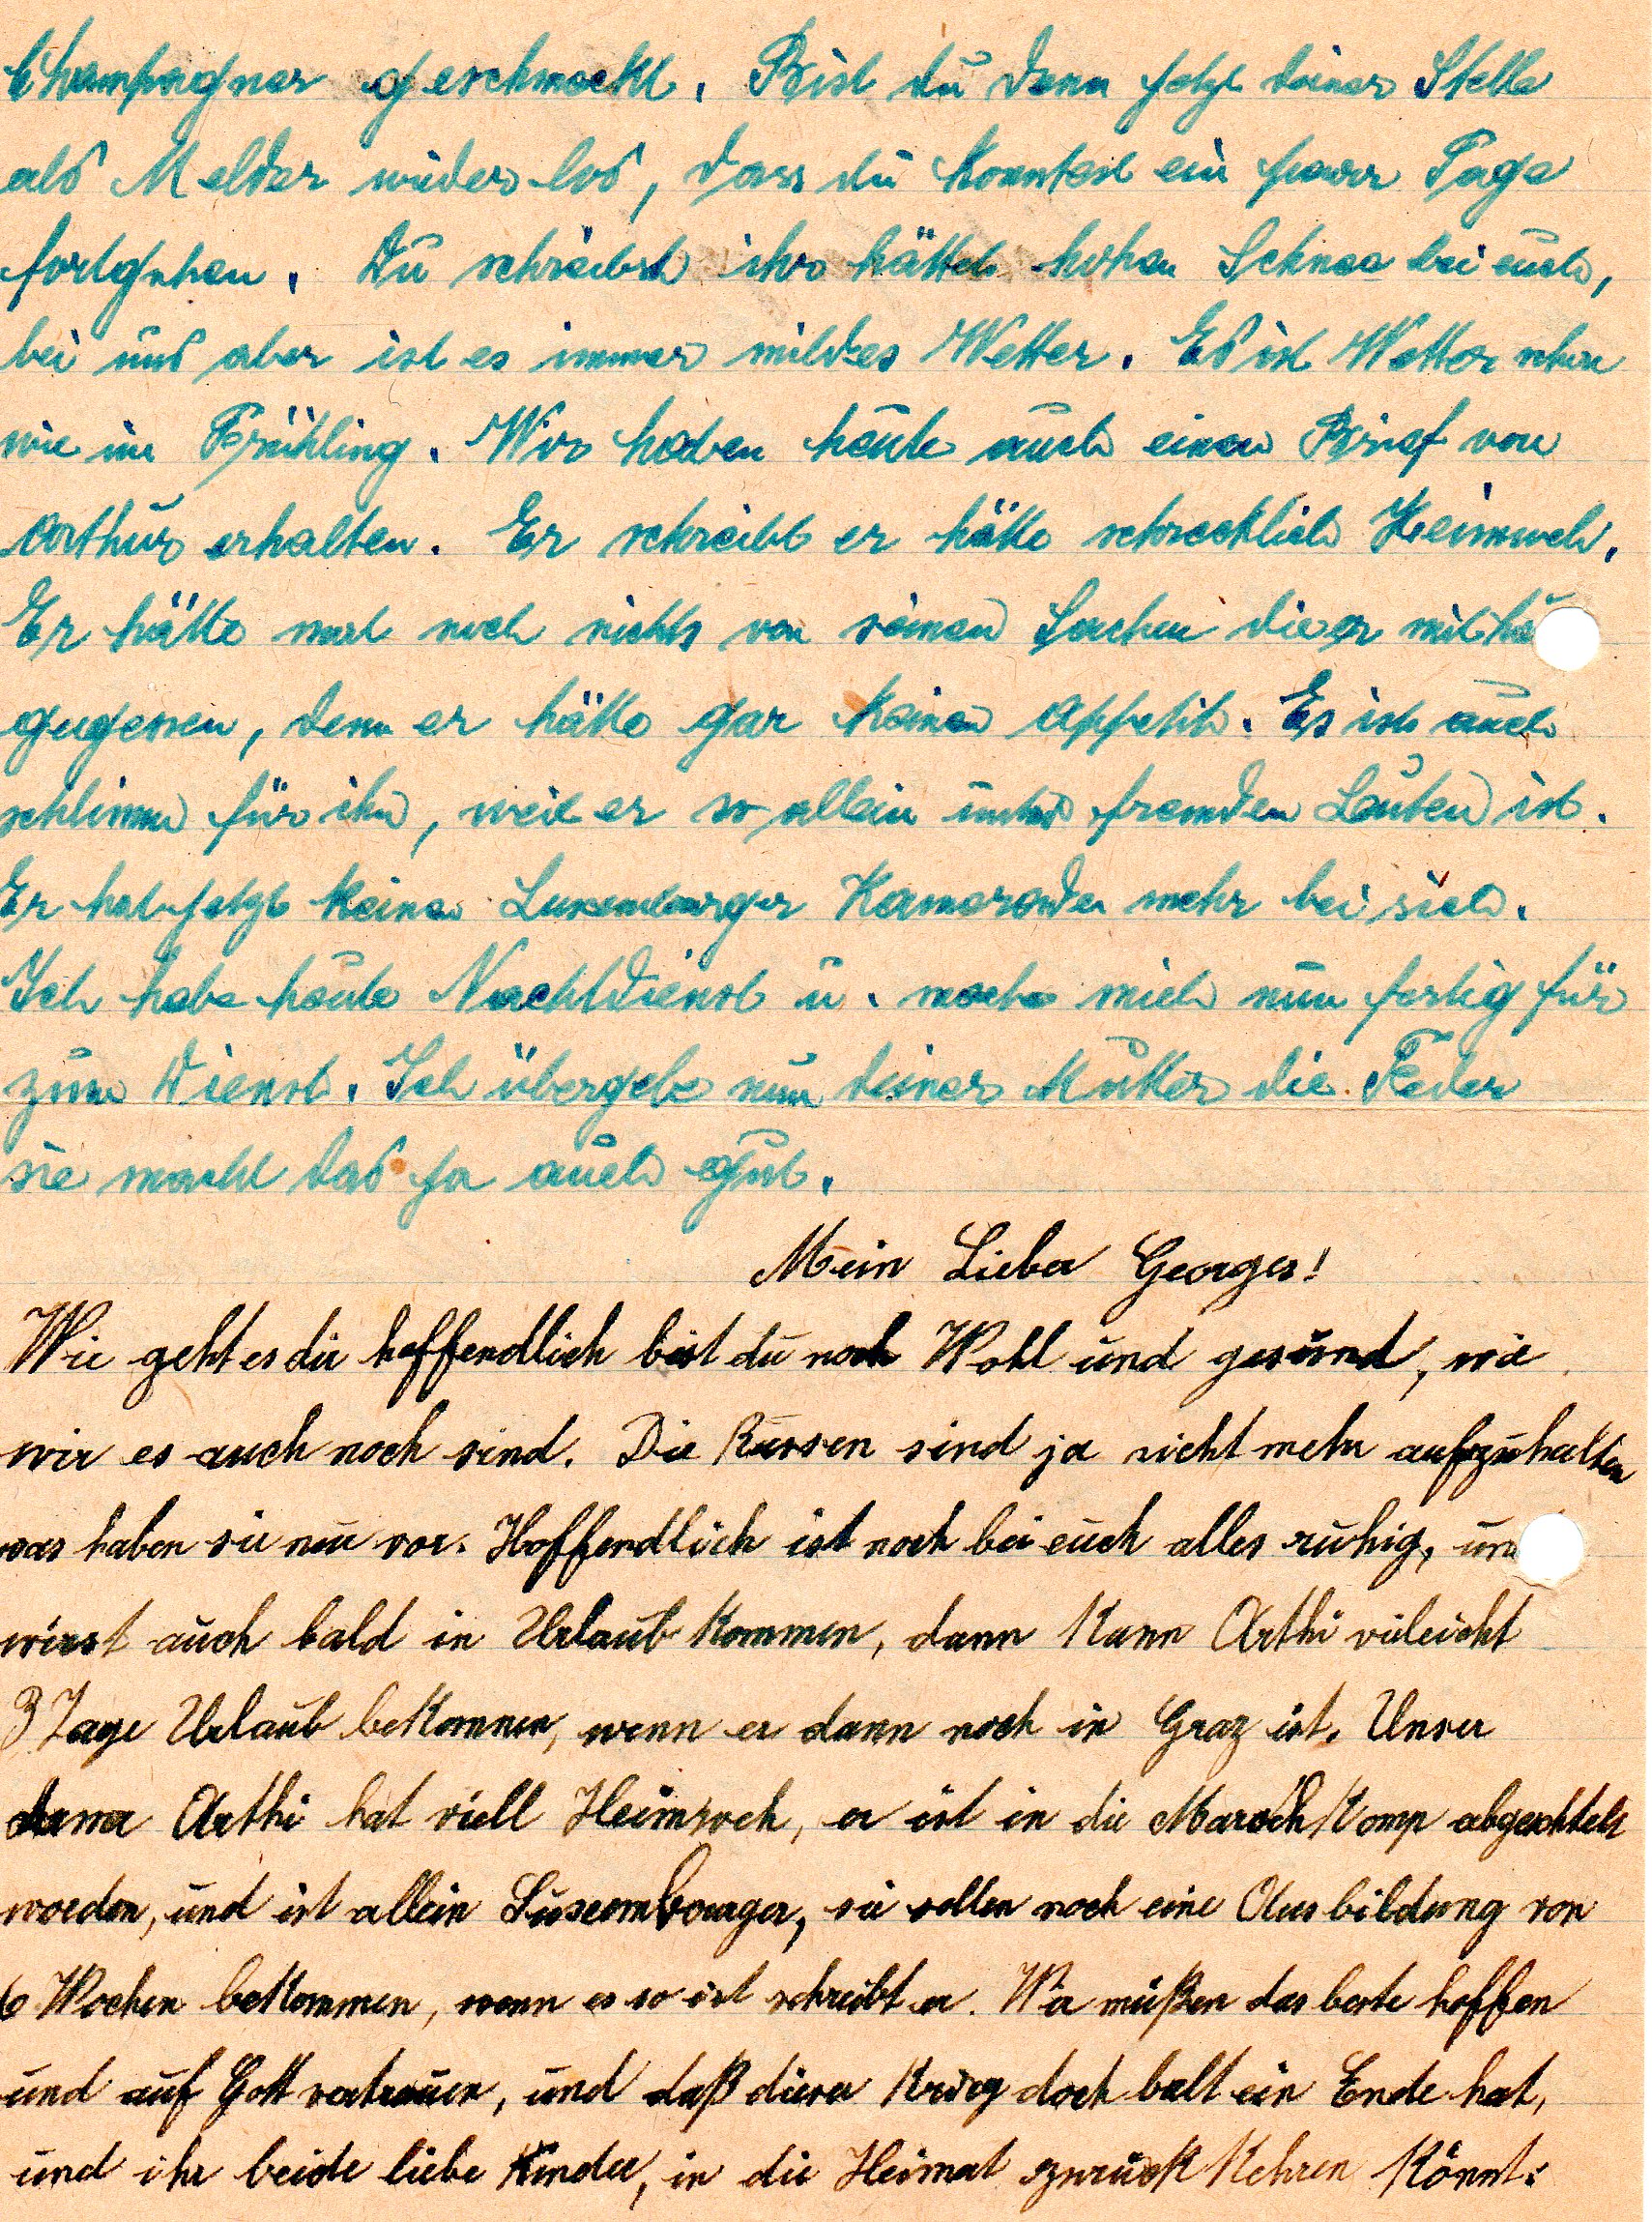 Champagner geschmeckt. Bist du denn jetzt deiner Stelle
als Melder wieder los, dass du konntest ein paar Tage
fortgehen. Du schreibst ihr hättet hohen Schnee bei euch,
bei uns aber ist es immer mildes Wetter. Es ist Wetter schon
wie im Frühling. Wir haben heute auch einen Brief von
Arthur erhalten. Er schreibt er hätte schrecklich Heimweh.
Er hätte mal noch nichts von seinen Sachen die er mit
gegessen, denn er hätte gar keinen Appetit. Es ist auch
schlimm für ihn, weil er so allein unter fremden Leuten ist.
Er hat jetzt keine Luxemburger Kameraden mehr bei sich.
Ich habe heute Nachtdienst u. mache mich nun fertig für
zum Dienst. Ich übergebe nun deiner Mutter die Feder
sie macht das ja auch gut.
Mein Lieber Georges!
Wie geht es dir hoffendlich bist du noch Wohl und gesund, wie
wir es auch noch sind. Die Russen sind ja nicht mehr aufzuhalten
was haben sie nur vor. Hoffendlich ist noch bei euch alles ruhig,
wirst auch bald in Urlaub kommen, dann kann Arthi vieleicht
3 Tage Urlaub bekommen, wenn er dann noch in Graz ist. Unser
Arthi hat viell Heimweh, er ist in die Marsch Komp
worden, und ist allein Luxembourger, sie sollen noch eine Ausbildung von
6 Wochen bekommen, wenn es so ist schreibt er. Wir müßen das beste hoffen
und auf Gott vertrauen, und daß dieser Krieg doch balt ein Ende hat,
und ihr beide liebe Kinder, in die Heimat zurück kehren könnt.